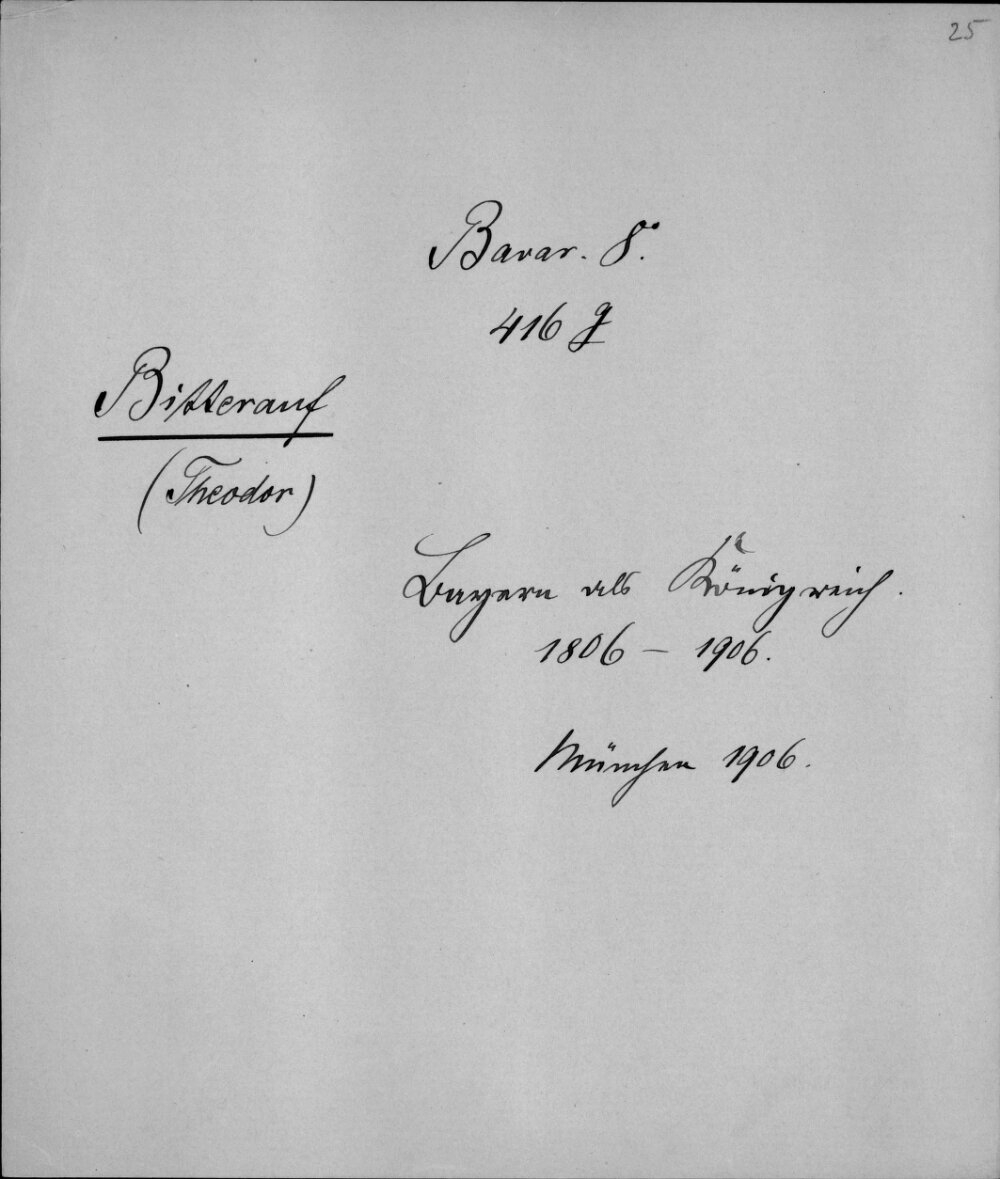 25
Bavar. 8°.
416 g
Bitterauf
(Theodor)
Bayern als Königreich.
1806 – 1906.
München 1906.